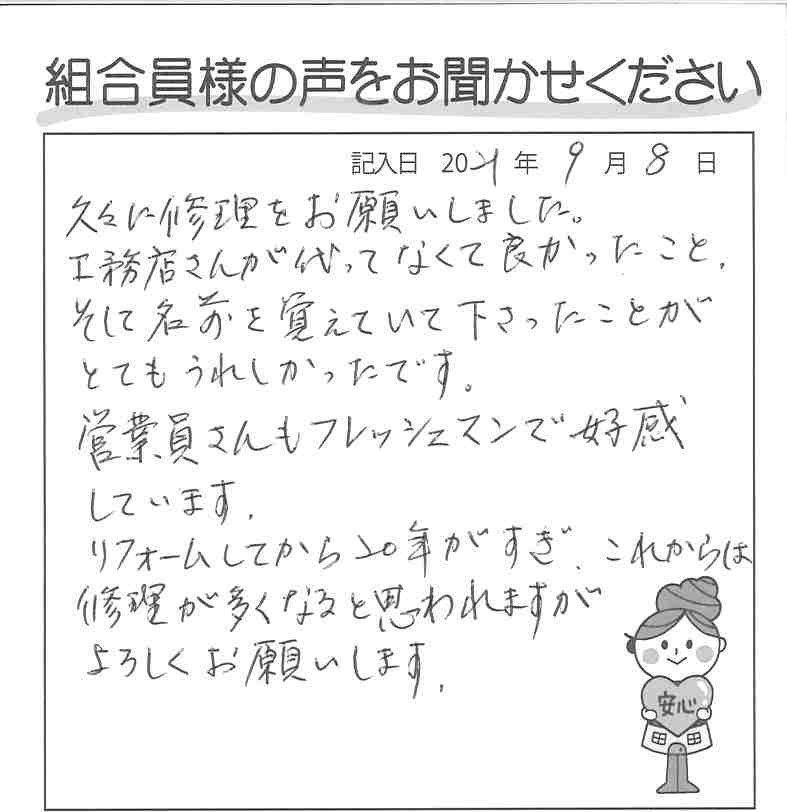 組合員様の声をお聞かせください
記入日 2021年 9月 8日
久々に修理をお願いしました。
工務店さんが代ってなくて良かったこと、
そして名前を覚えていて下さったことが
とてもうれしかったです。
営業員さんもフレッシュマンで好感
しています。
リフォームしてから20年がすぎ、これからは
修理が多くなると思われますが
よろしくお願いします。
安心